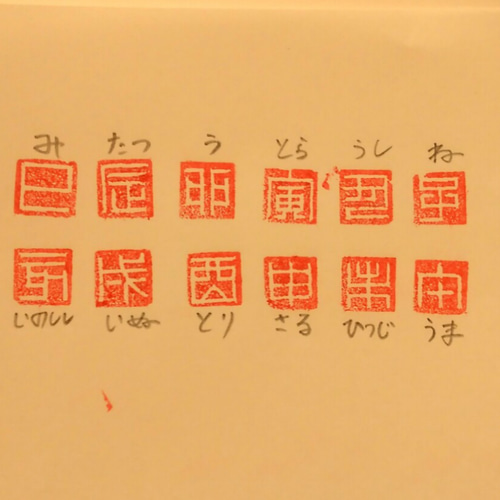 み たつ う とら うし ね
巳 辰 卯 寅 丑 子
亥 戌 酉 申 未 午
いのしし いぬ とり さる ひつじ うま